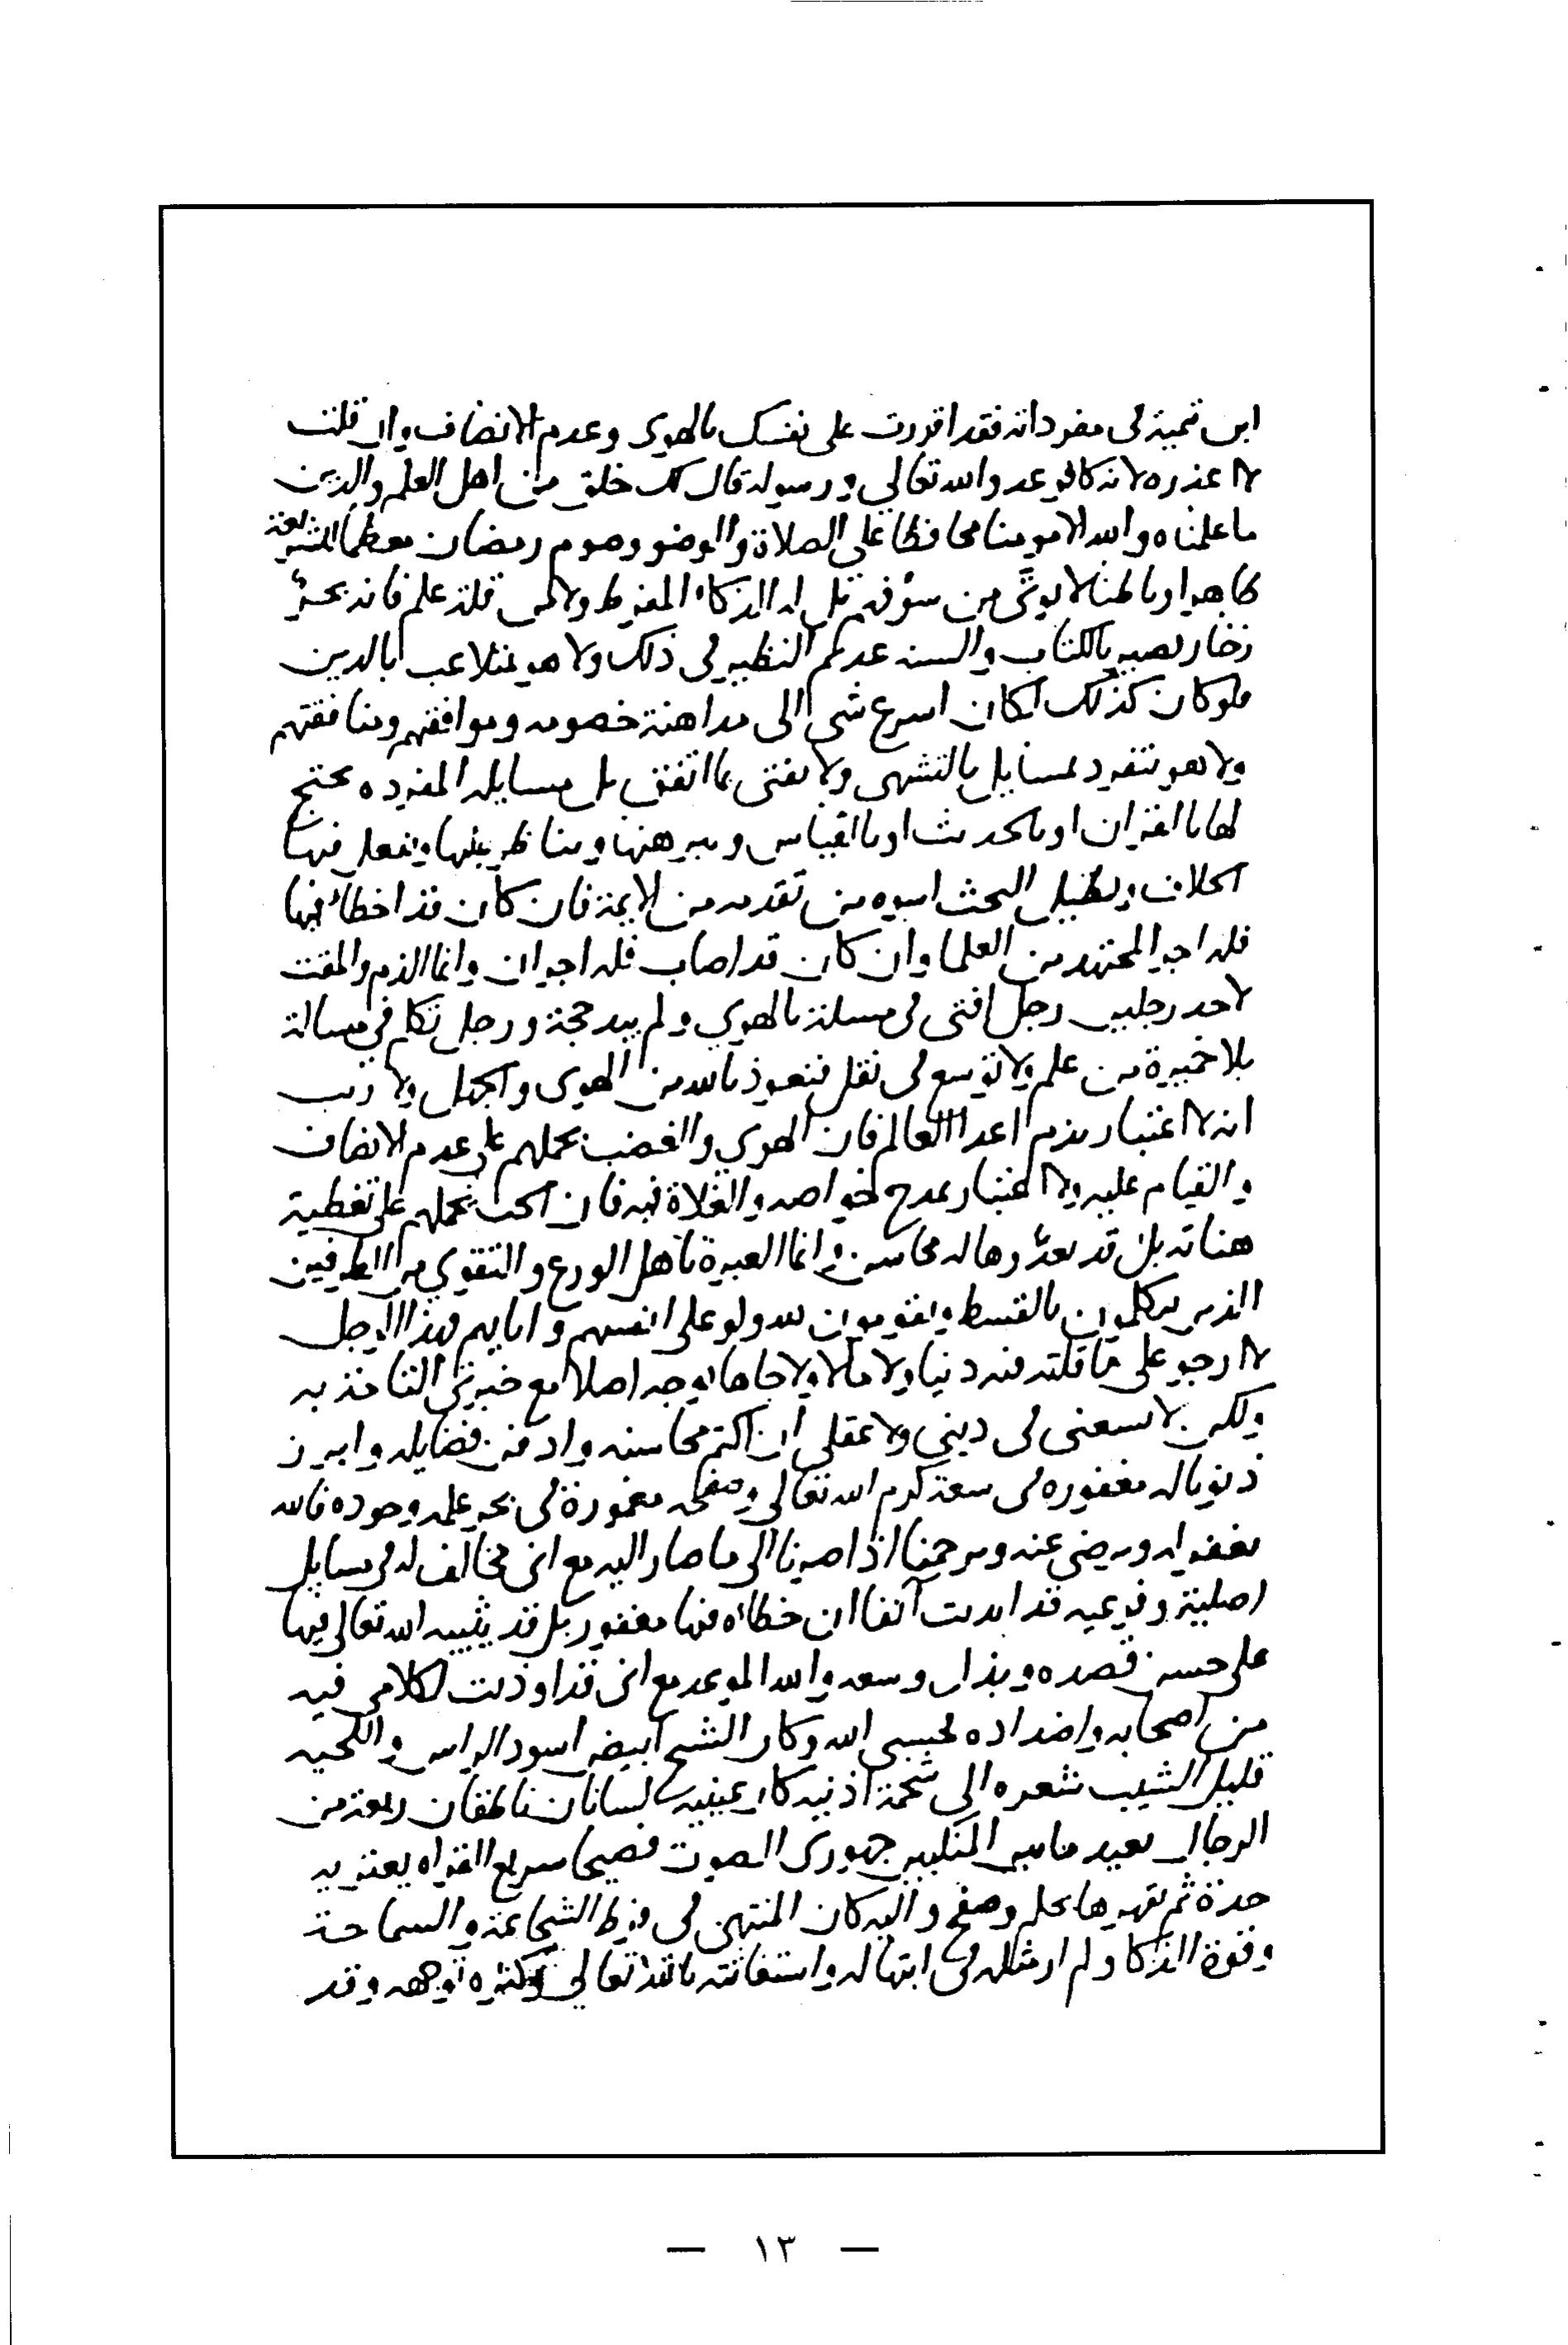 ابن تيمية في مفرداته فقد اقررت على نفسك بالهوى وعدم الانصاف وان قلت
لا اعذره لانه كافر عدو الله تعالي ورسوله قال لك خلق من اهل العلم والدين
ما علمناه والله الا مومنا محافظا على الصلاة والوضو وصوم رمضان معظما للشريعة
ظاهرا وباطنا لا يوتى من سوء فهم بل له الذكاء المفرط ولا من قلة علم فانه بحر
زخار بصير بالكتاب والسنه عديم النظير في ذلك ولا هو بمتلاعب بالدين
فلو كان كذلك لكان اسرع شي الى مداهنة خصومه وموافقتهم ومنافقتهم
ولا هو يتفرد بمسايل بالتشهي ولا يفتي بما اتفق بل مسايله المفرده يحتج
لها بالقران او بالحديث او بالقياس ويبرهنها ويناظر عليها وينقل فيها
الخلاف ويطيل البحث اسوه من تقدمه من الايمة فان كان قد اخطاء فيها
فله اجر المجتهد من العلما وان كان قد اصاب فله اجران وانما الذم والمقت
لاحد رجلين رجل افتى في مسلة بالهوي ولم يبد حجة ورجل تكلم في مسالة
بلا خميرة من علم ولا توسع في نقل فنعوذ بالله من الهوى والجهل ولا ريب
انه لا اعتبار بذم اعدا العالم فان الهوى والغضب يحملهم على عدم الانصاف
والقيام عليه ولا اعتبار بمدح خواصه والغلاة فيه فان الحب يحملهم على تغطية
هناته بل قد يعدوها له محاسن وانما العبرة باهل الورع والتقوي من الطرفين
الذين يتكلمون بالقسط ويقومون لله ولو على انفسهم وابايهم فهذا الرجل
لا ارجو على ما قلته فيه دنيا ولا مالا ولا جاها بوجه اصلا مع خبرتي التامة به
ولكن لا يسعني في ديني ولا عقلي ان اكتم محاسنه وادفن فضايله وابرز
ذنوبا له مغفوره في سعة كرم الله تعالى وصفحه مغمورة في بحر علمه وجوده فالله
يغفر له ويرضى عنه ويرحمنا اذا صرنا الى ما صار اليه مع اني مخالف له في مسايل
اصلية وفرعيه قد ابديت آنفا ان خطاءه فيها مغفور بل قد يثيبه الله تعالى فيها
على حسن قصده وبذل وسعه والله الموعد مع اني قد اوذيت لكلامي فيه
من اصحابه واضداده فحسبي الله وكان الشيخ ابيض اسود الراس واللحيه
قليل الشيب شعره الى شحمة اذنيه كان عينيه لسانان ناطقان ربعة من
الرجال بعيد ما بين المنكبين جهوري الصوت فصيحا سريع القراه يعتريه
حدة ثم يقهرها بحلم وصفح واليه كان المنتهى في فرط الشجاعة والسماحة
وقوة الذكا ولم ار مثله في ابتهاله واستغاثته بالله تعالى وكثره توجهه وقد
— ١٣ —